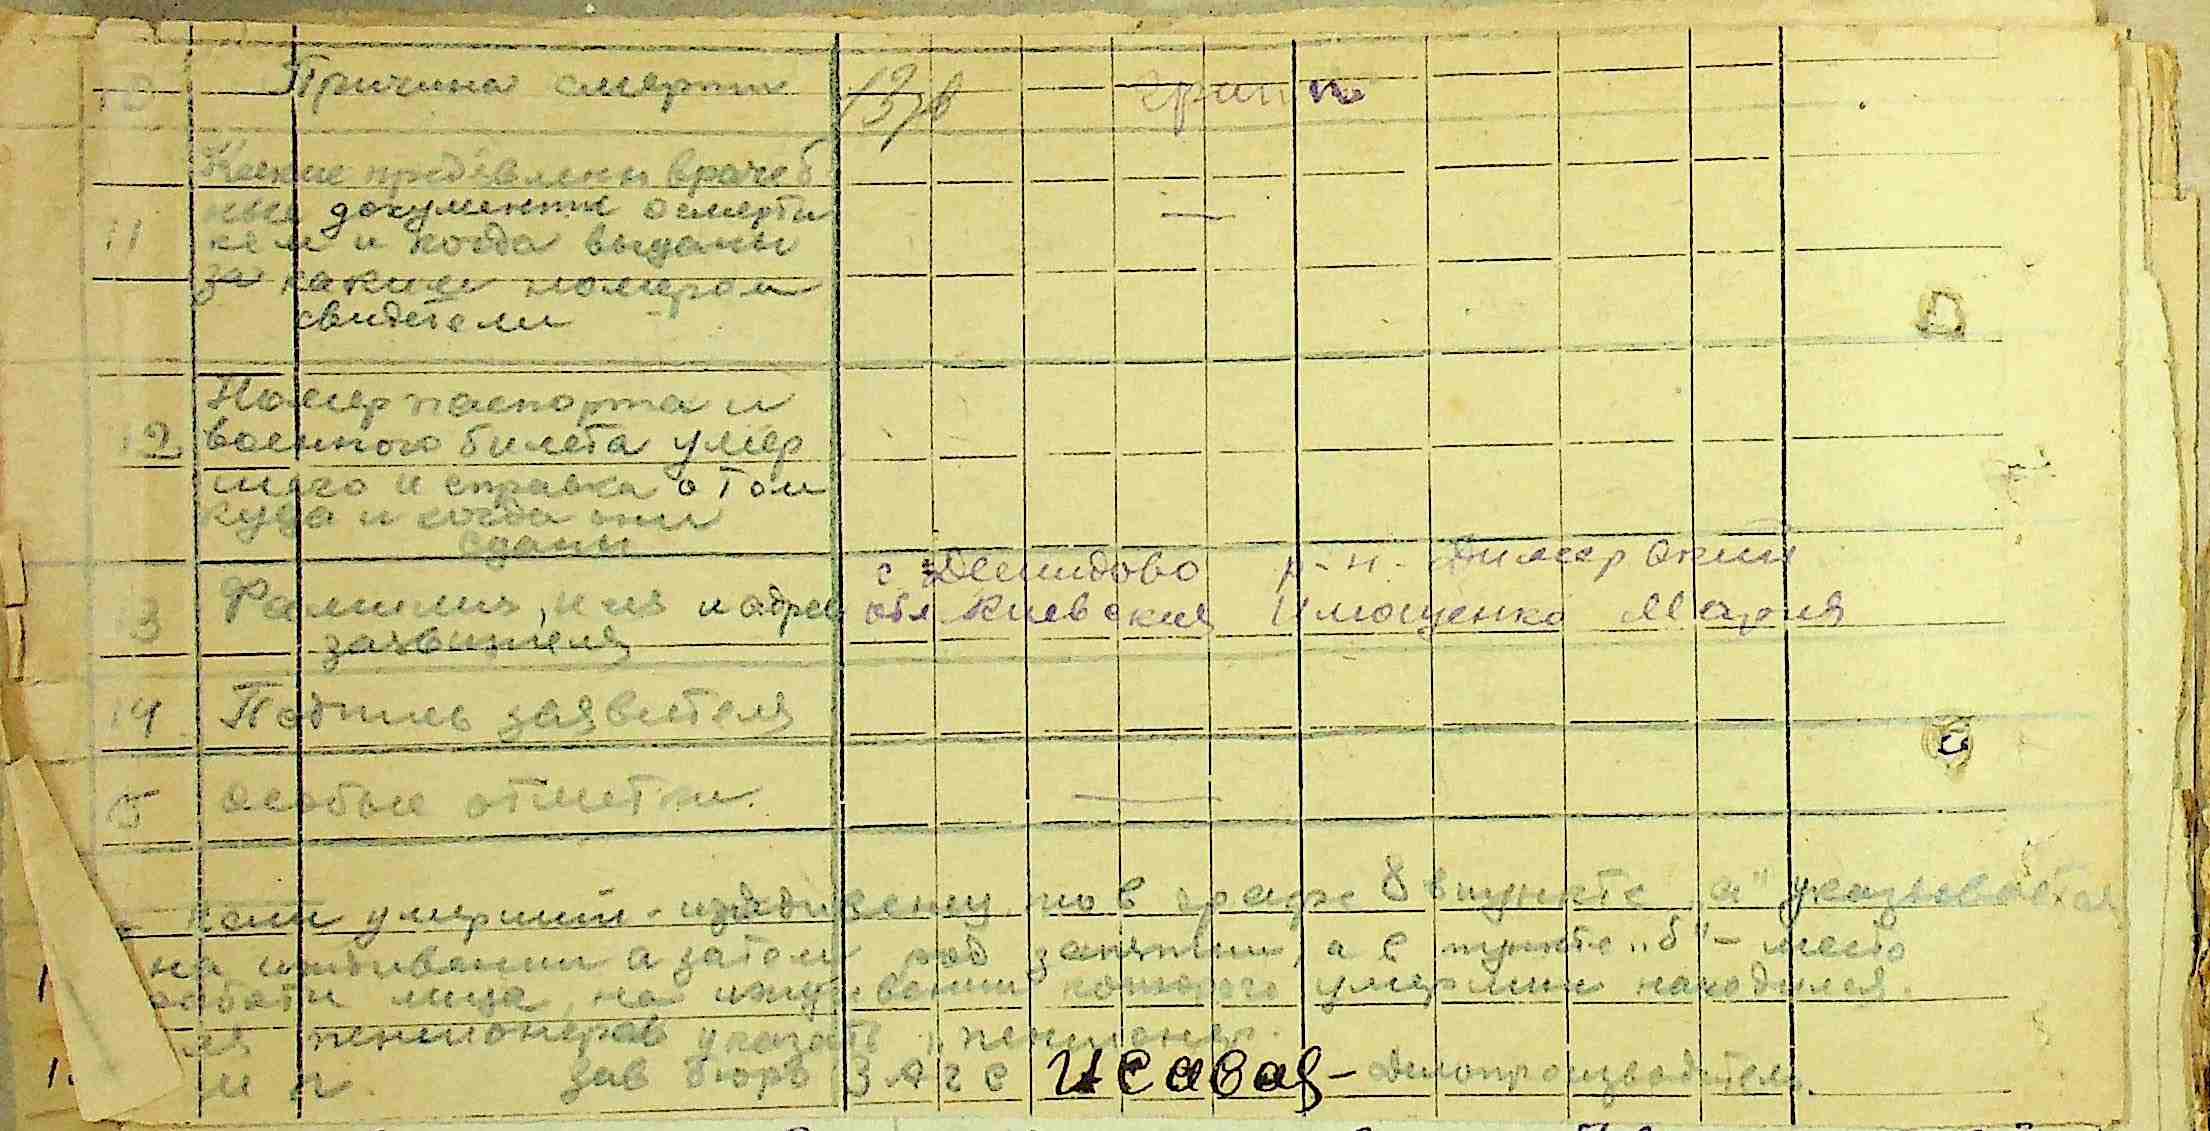 10 Причина смерти грипп
Какие предъявлены врачеб
ные документы о смерти
11 кем и когда выданы
за каким номером
свидетели
Номер паспорта и
12 военного билета умер
шего и справка о том
куда и когда они
сданы
с Демидово р-н. Димерский
13 Фамилия, имя и адрес обл Киевская Имощенко Мария
заявителя
14 Подпись заявителя
15 Особые отметки.
Если умерший - иждивенец, то в графе 8 в пункте "а" указывается
на иждивении а затем род занятий, а в пункте "б" - место
работы лица, на иждивении которого умерший находился.
пенсионеров указать "пенсионер.
М п. Зав бюро ЗАГС Исавая - Делопроизводитель.